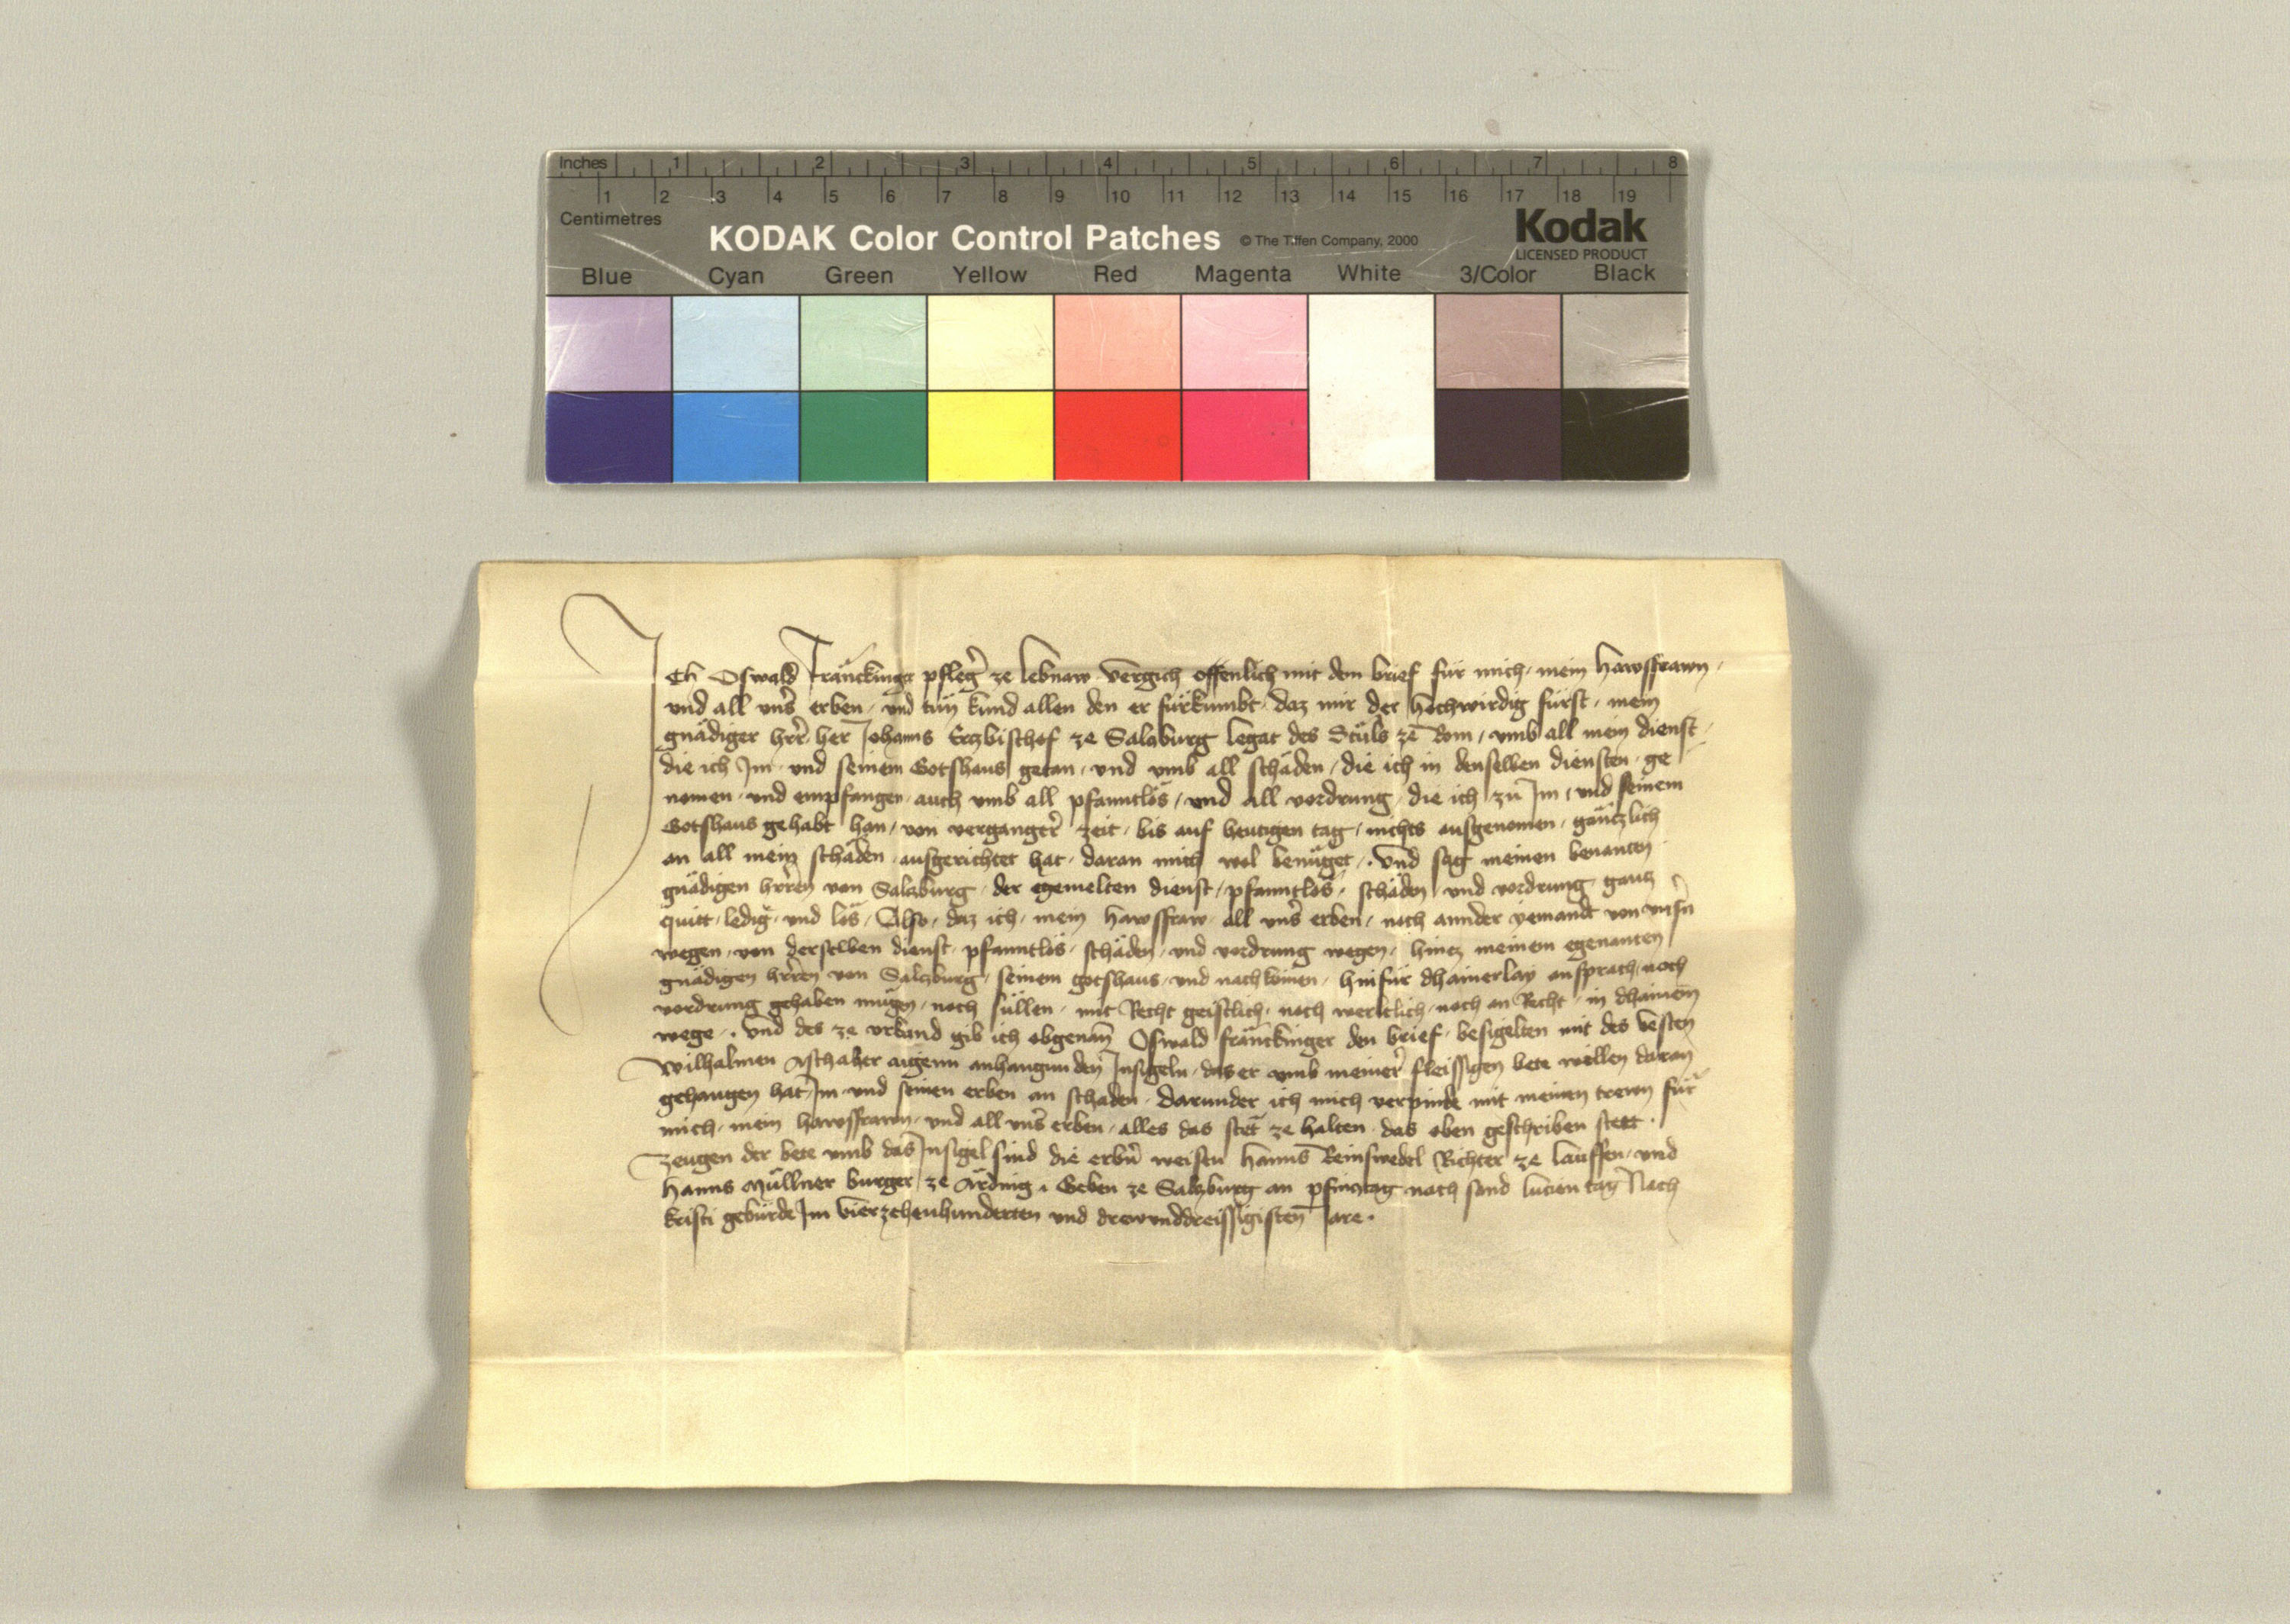 Inches 1 2 3 4 5 6 7 8
1 2 3 4 5 6 7 8 9 10 11 12 13 14 15 16 17 18 19
Centimetres
KODAK Color Control Patches © The Tiffen Company, 2000 Kodak
LICENSED PRODUCT
Blue Cyan Green Yellow Red Magenta White 3/Color Black
Ich Oswald Fränckinger pfleger ze Lebnaw vergich offenlich mit dem brief für mich, mein hawsfrawn,
vnd all vnser erben, vnd tün kund allen den er fürkumbt, daz mir der hochwirdig fürst, mein
gnädiger hrr̄ her Johanns Ertzbischof ze Saltzburg Legat des Stůls ze Rom, vmb all mein dienst,
die ich Im vnd seinem Gotshaus getan, vnd vmb all schäden, die ich in denselben diensten ge
nomen, vnd empfangen, auch vmb all pfanntlös, vnd all vordrung, die ich zů Im, vnd seinem
Gotshaus gehabt han, von vergangerr̄ zeit, bis auf hewtigen tag, nichts ausgenomen, gäntzlich
an all mein schäden, ausgerichtet hat, daran mich wol benüget, Vnd sag meinen benanten
gnädigen hrren von Saltzburg, der egemelten dienst, pfanntlös, schäden, vnd vordrung, gantz
quitt, ledig, vnd los, Also, daz ich, mein hawsfraw, all vnser erben, noch annder yemandt von vnsern
wegen, von derselben dienst, pfanntlös, schäden, vnd vordrung wegen, hintz meinem egenanten
gnädigen hrren von Saltzburg, seinem gotshaus, vnd nachkomen, hinfür dhainerlay ansprach, noch
vordrung gehaben mügen, noch süllen, mit Recht geistlich, noch werltlich, noch an Recht, in dhainem
wege, Vnd des ze vrkund gib ich obgenan̄ Oswald Fränckinger den brief, besigelten mit des vesten
Wilhalmen Aschaher aigenn anhangunden Insigeln, das er vmb meinerr̄ fleissigen bete willen daran
gehangen hat, Im, vnd seinen erben an schaden, darunder ich mich verpinde mit meinen trewn für
mich, mein hawsfrawn, vnd all vnser erben, alles das stet ze halten, das oben geschriben stett.
Zeugen der bete vmb das Insigel sind die erbern weisen Hanns Reinswedel Richter ze Lauffen, vnd
Hanns Müllner burger ze Ärding. Geben ze Saltzburg an pfintztag nach sand Lucien tag Nach
kristi gebürde Im vierzehenhunderten vnd drewunddreissigisten Jare.